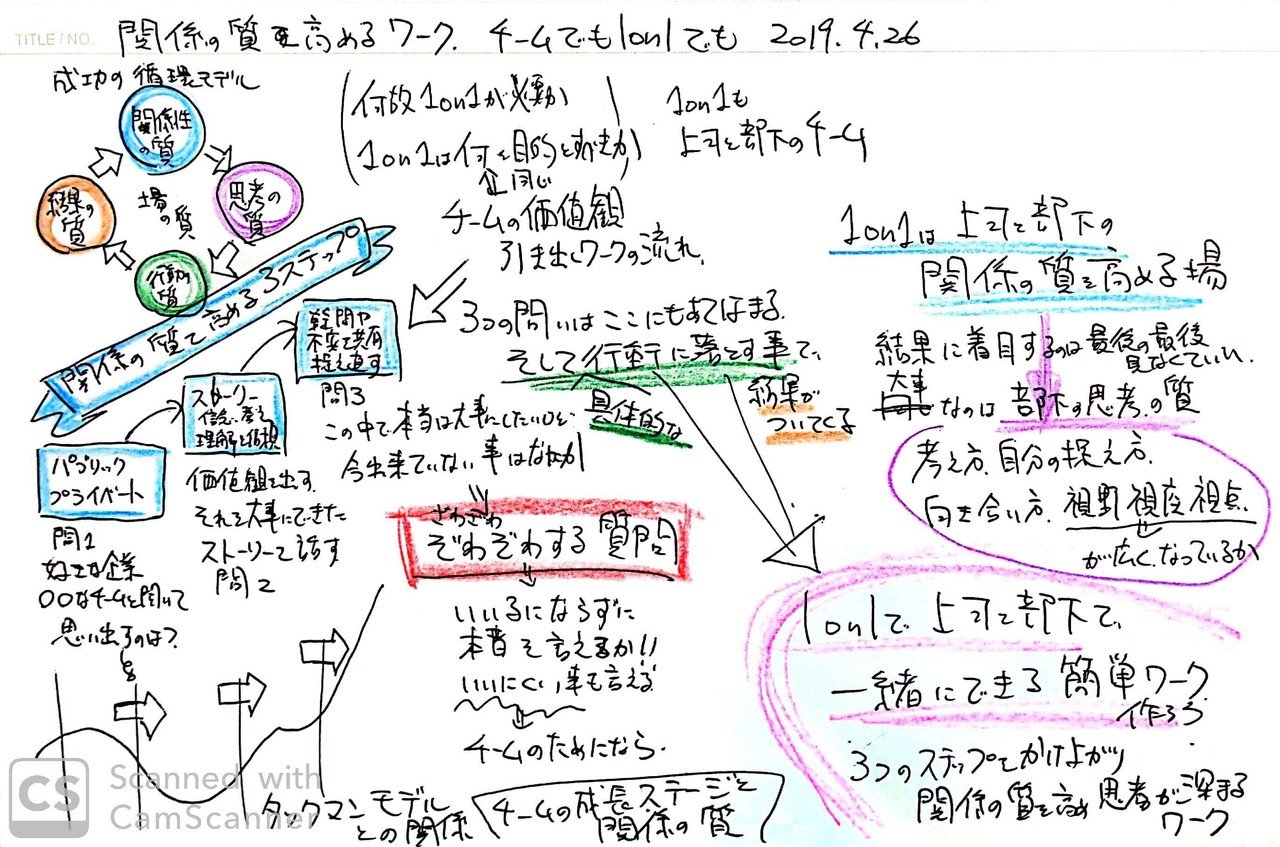 TITLE/NO.
関係の質を高めるワーク. チームでも1on1でも 2019.4.26
成功の循環モデル
関係性
の
質
思考の
質
行動の
質
結果の
質
場の
質
関係の質を高める3ステップ
パブリック
プライベート
問1
好きな企業
○○なチームと聞いて
思い出すのは?
ストーリー
信念、考え
理解と
価値観を出す.
それを大事にできた
ストーリーを話す
問2
疑問や
不安を共有
捉え直す
問3
この中で、本当は大事にしたいけど、
今出来ていない事はなにか
ざわざわ
ぞわぞわする質問
いいるにならずに
本音を言えるか!!
いいにくい事も言える
チームのためになら.
何故1on1が必要か
1on1は何を目的とすべきか
全同じ
チームの価値観
引き出しワークの流れ.
3つの問いはここにもあてはまる.
そして行動に落とす事で、
具体的な
結果が
ついてくる
1on1も
上司と部下のチーム
1on1は上司と部下の
関係の質を高める場
結果に着目するのは最後の最後
見なくていい.
大事
なのは 部下の思考の質
考え方. 自分の捉え方.
向き合い方. 視野視座視点
が広くなっているか
1on1で上司と部下で、
一緒にできる簡単ワーク
作ろう
3つのステップをかけよがり
関係の質を高め思考が深まる
ワーク
タックマンモデル
との関係
チームの成長ステージと
関係の質
CS Scanned with
CamScanner